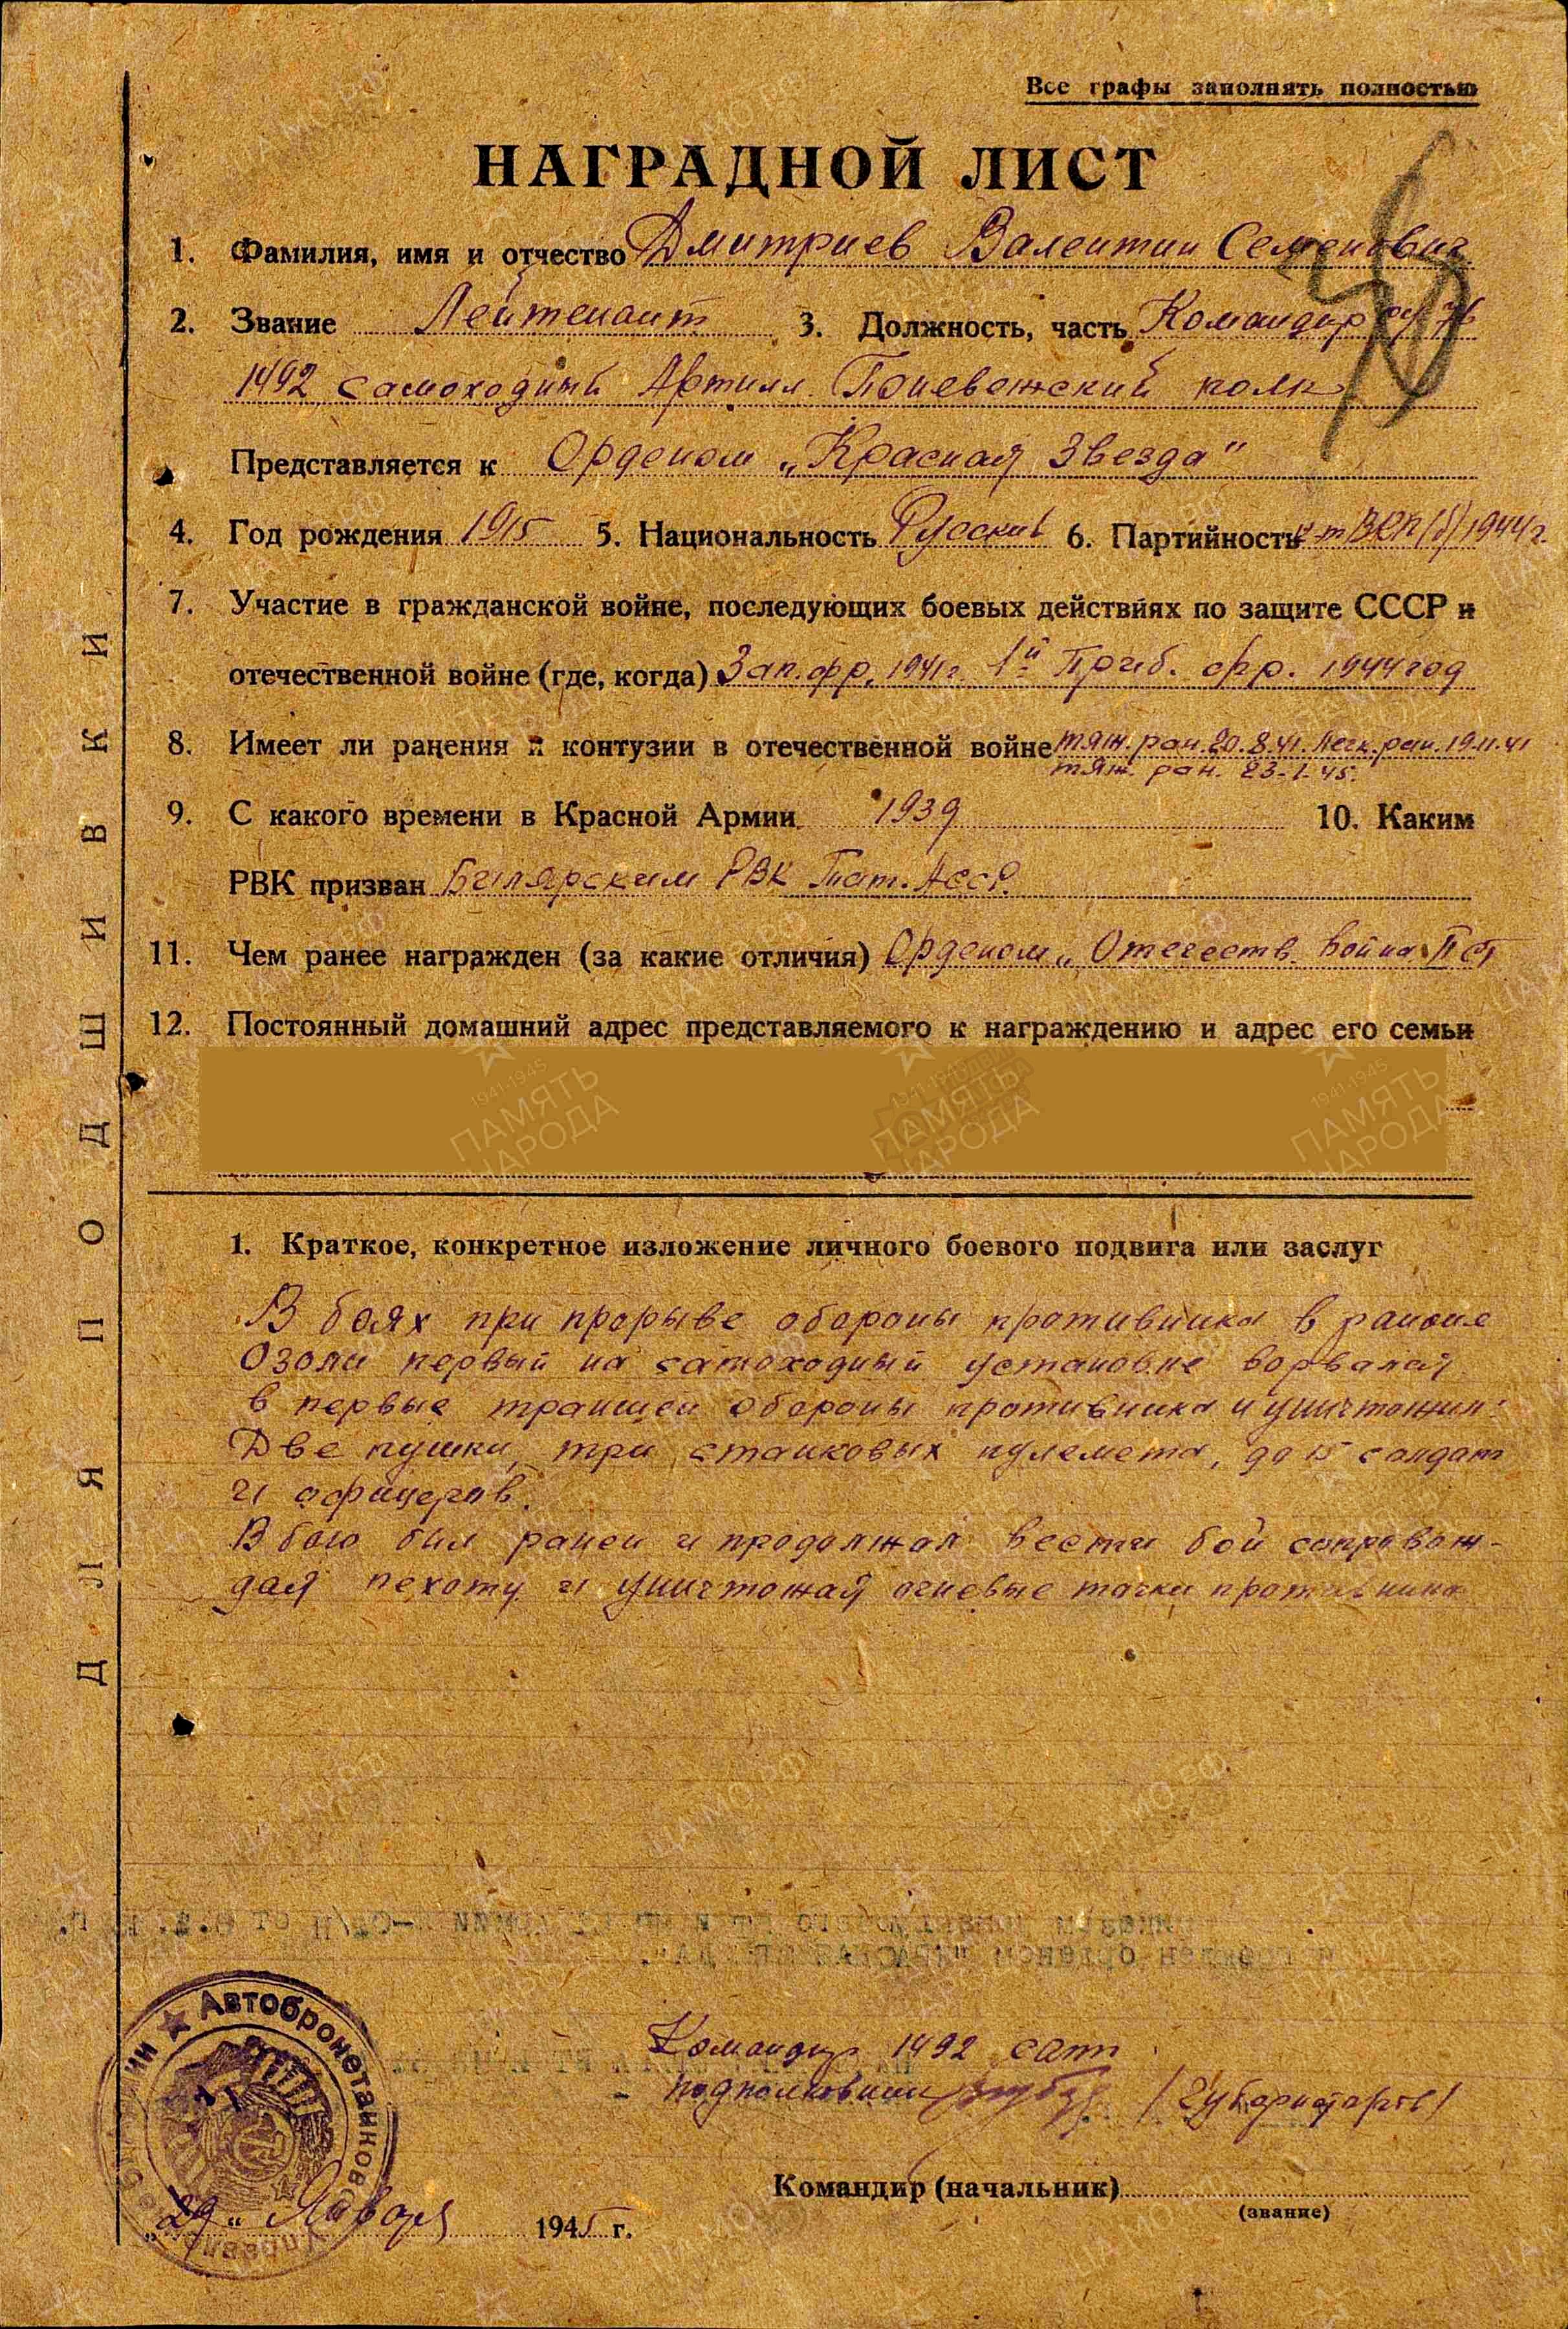 Все графы заполнять полностью
НАГРАДНОЙ ЛИСТ
1. Фамилия, имя и отчество Дмитриев Валентин Семенович
2. Звание Лейтенант 3. Должность, часть Командир су 76
1492 самоходный Артилл. Поневежский полк
Представляется к Орденом „Красная Звезда"
4. Год рождения 1915 5. Национальность Русский 6. Партийность к-т ВКП(б) 1944 г.
7. Участие в гражданской войне, последующих боевых действиях по защите СССР и
отечественной войне (где, когда) Зап. фр. 1941 г. 1й Приб. фр. 1944 год
8. Имеет ли ранения и контузии в отечественной войне тяж. ран. 20.8.41. легк. ран. 19.11.41
тяж. ран. 23-1-45.
9. С какого времени в Красной Армии 1939 10. Каким
РВК призван Билярским РВК Тат. АССР.
11. Чем ранее награжден (за какие отличия) Орденом „Отечеств. война II ст
12. Постоянный домашний адрес представляемого к награждению и адрес его семьи
1. Краткое, конкретное изложение личного боевого подвига или заслуг
В боях при прорыве обороны противника в районе
Озоли первый на самоходный установке ворвался
в первые траншеи обороны противника и уничтожил:
Две пушки, три станковых пулемета, до 15 солдат
и офицеров.
В бою был ранен и продолжал вести бой сопровож-
дая пехоту и уничтожая огневые точки противника
Командир 1492 сап
подполковник
Командир (начальник)
(звание)
„29" Января 1945 г.
Автобронетанков
ДЛЯ ПОДШИВКИ
1941-1945
ПАМЯТЬ
НАРОДА
ЦАМО.РФ